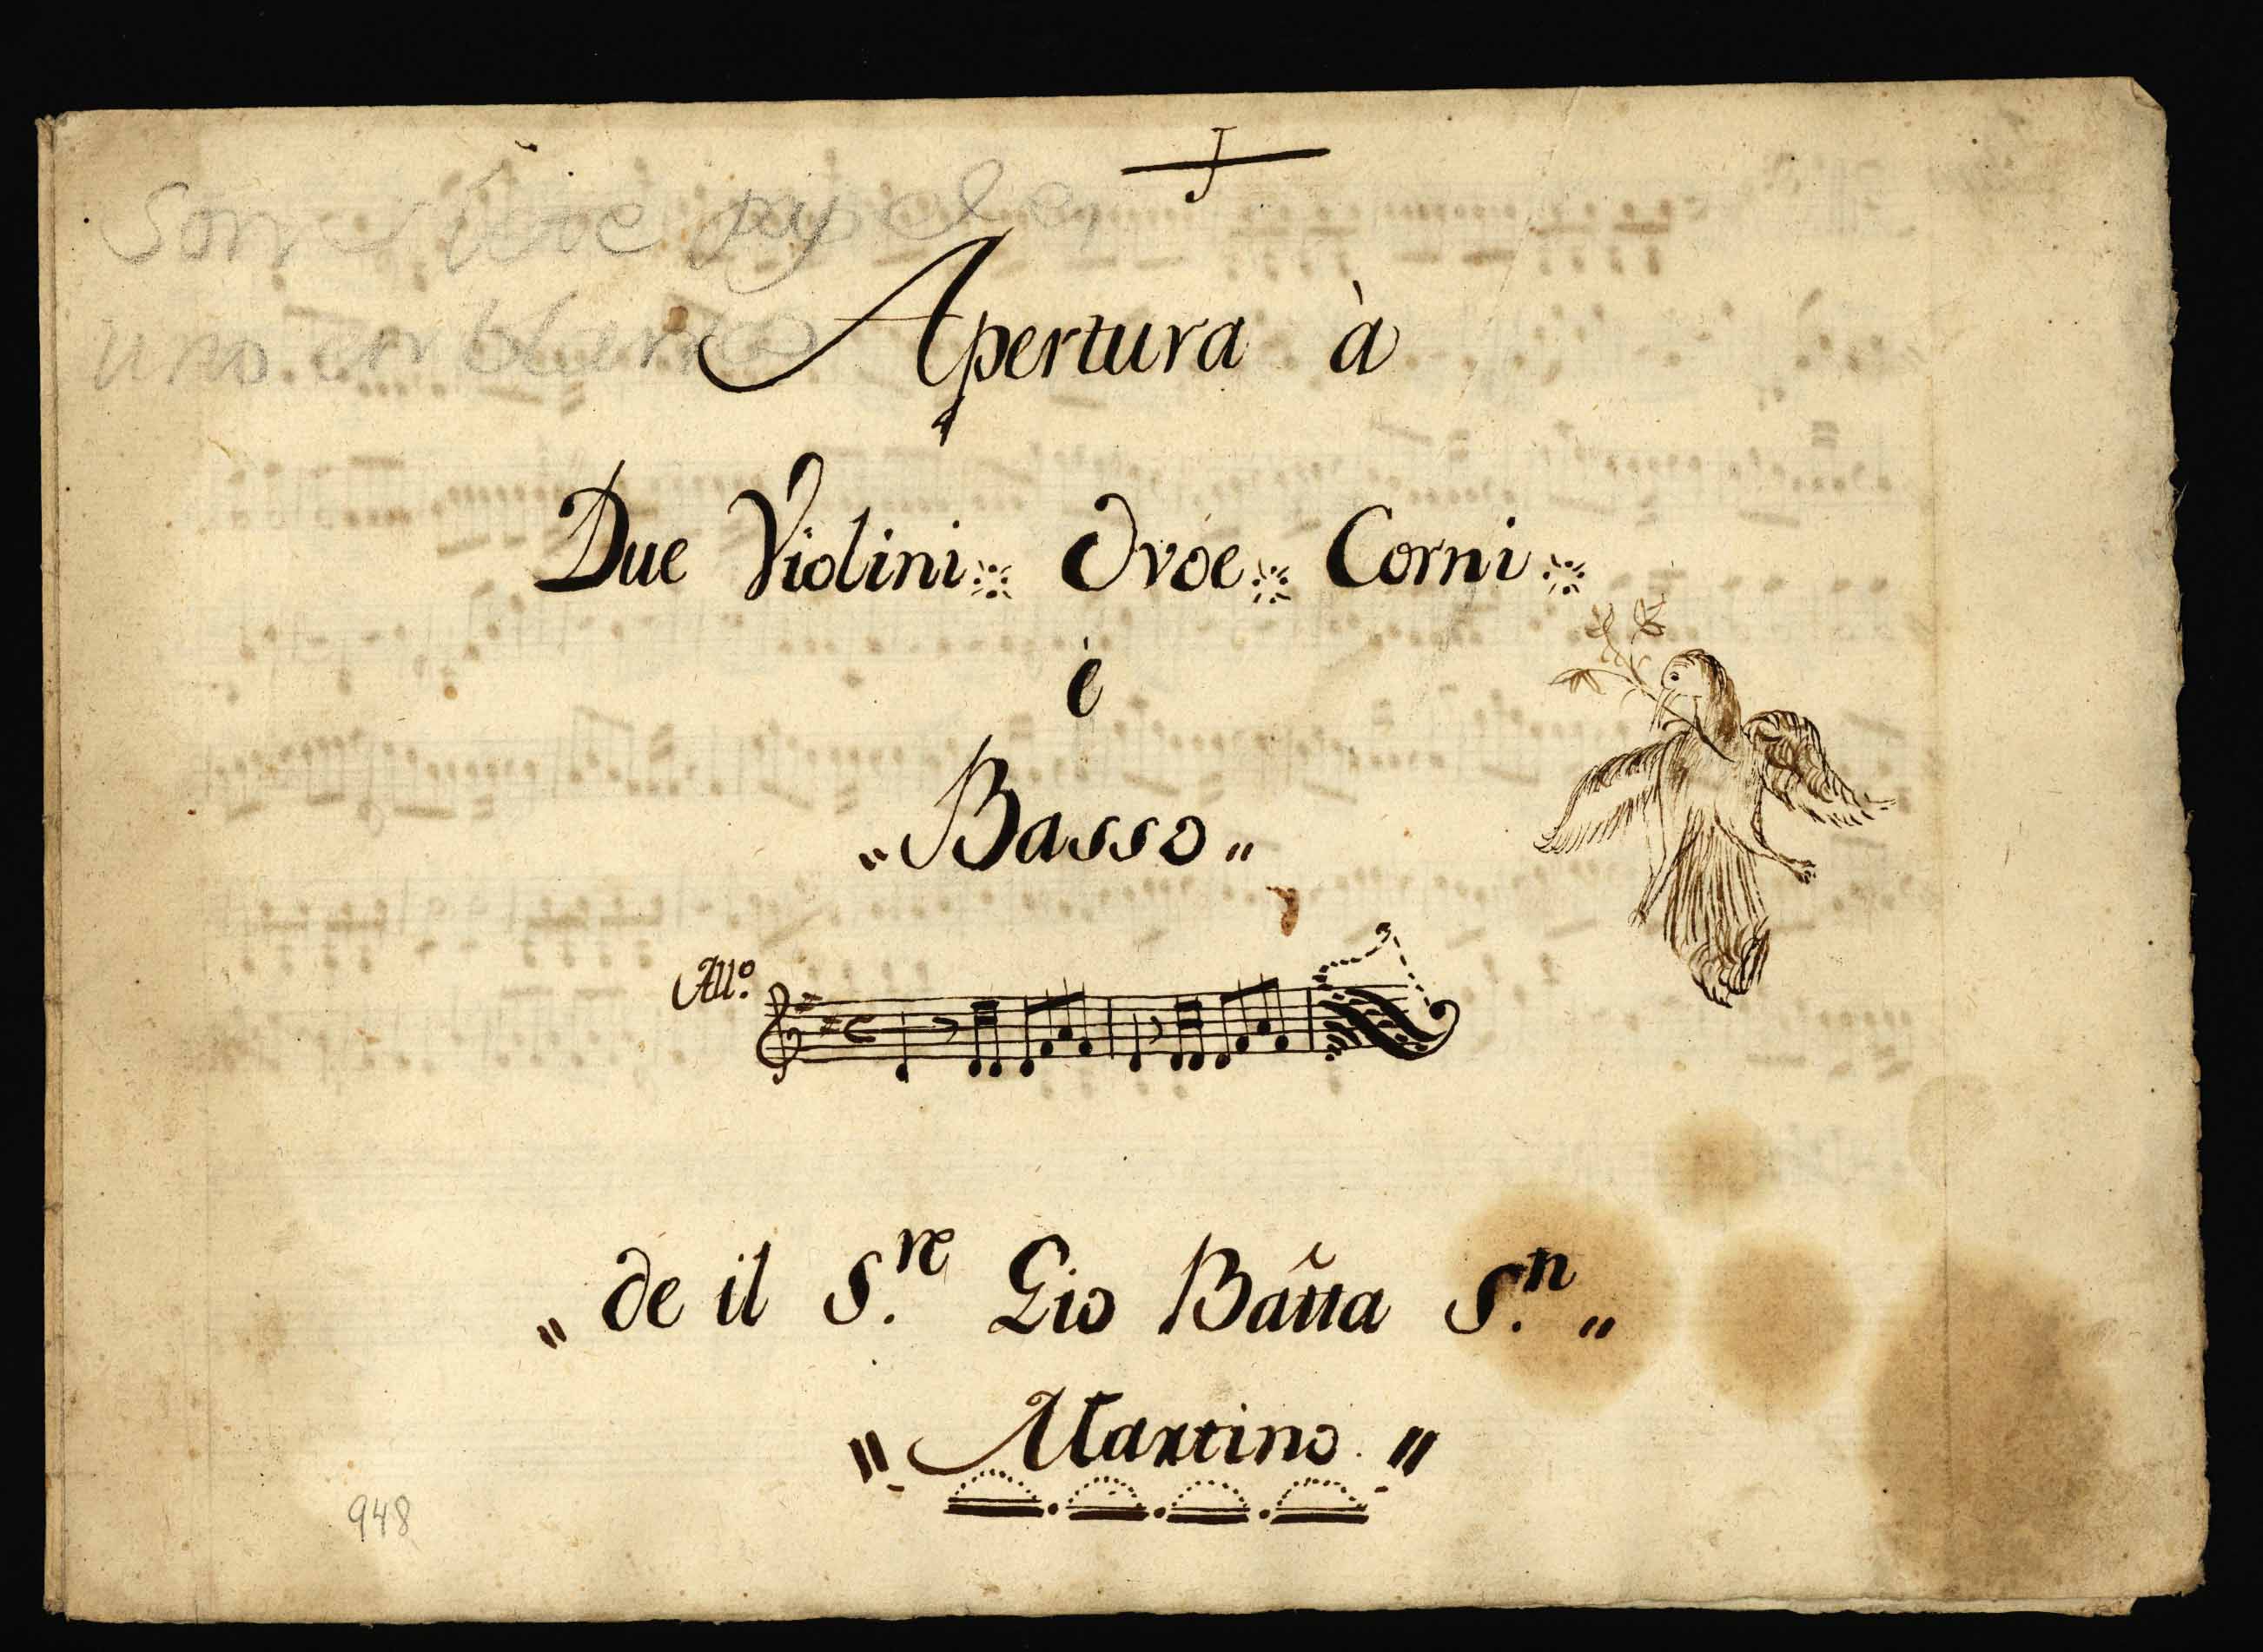 Son siete papeles
uno en blanco
Apertura à
Due Violini Ovoe Corni
è
„Basso„
All.º
„ de il S.re Gio Batta S.n „
„ Martino „
948